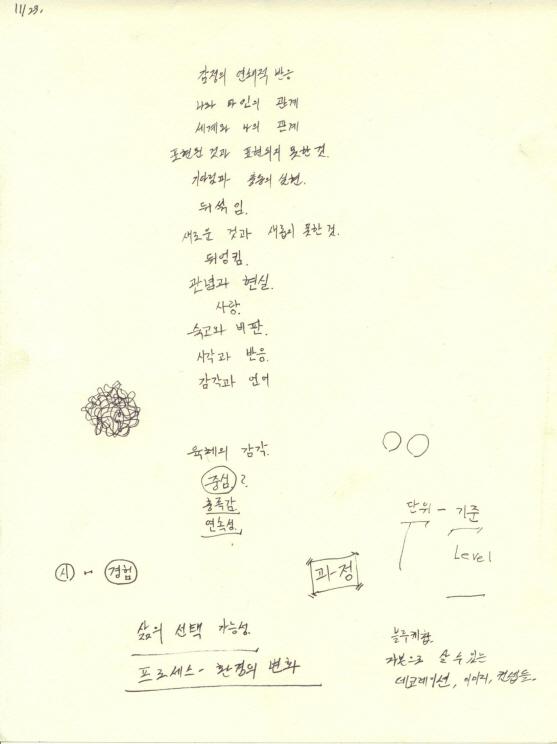 11/23.
감정의 연쇄적 반응
나와 타인의 관계
세계와 나의 관계
표현된 것과 표현되지 못한 것.
기다림과 충동의 실현.
뒤섞임.
새로운 것과 새롭지 못한 것.
뒤엉킴.
관념과 현실.
사랑.
숙고와 비판.
시각과 반응.
감각과 언어
육체의 감각.
중심?
충족감.
연속성.
단위 - 기준
Level
시 - 경험
과정
삶의 선택 가능성.
프로세스 - 환경의 변화
블루케찹.
자본으로 살 수 있는
데코레이션, 이미지, 컨셉들.